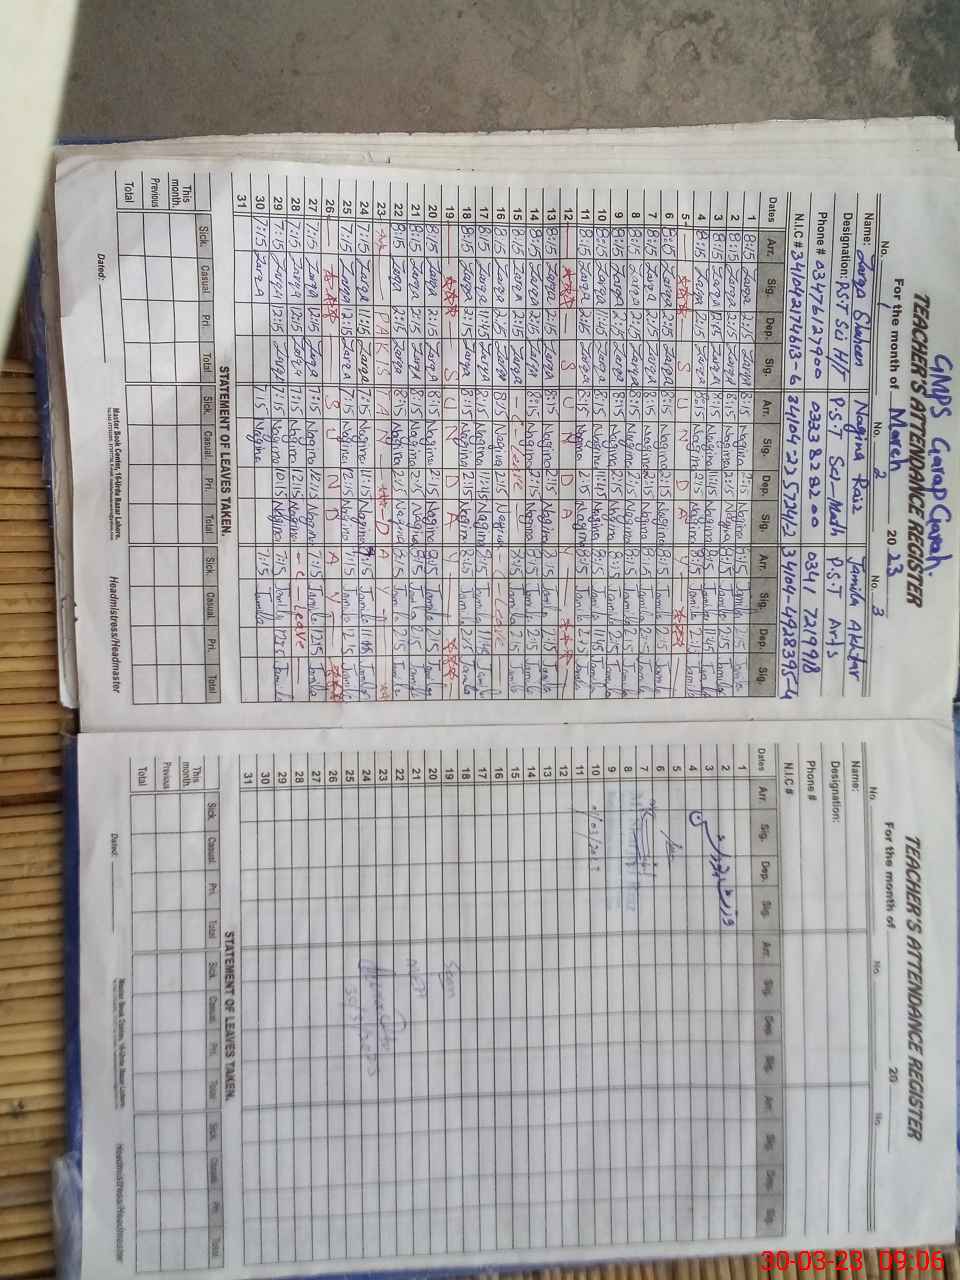 GMPS Garap Garah.
TEACHER'S ATTENDANCE REGISTER
For the month of March 2023
No. 1 No. 2 No. 3
Name: Zarqa Shaheen Nagina Riaz Jamila Akhtar
Designation: P.S.T Sci H/T P.S.T Sci-Math P.S.T Arts
Phone # 03476127900 0333 8282200 0341 7219918
N.I.C #
Dates Arr. Sig. Dep. Sig. Arr. Sig. Dep. Sig. Arr. Sig. Dep. Sig.
1 8:15 Zarqa 2:15 Zarqa 8:15 Nagina 2:15 Nagina 8:15 Jamila 2:15 Jamila
2 8:15 Zarqa 2:15 Zarqa 8:15 Nagina 2:15 Nagina 8:15 Jamila 2:15 Jamila
3 8:15 Zarqa 8:15 Nagina 11:45 Nagina 8:15 Jamila 11:45 Jamila
4 8:15 Zarqa 2:15 Zarqa 8:15 Nagina 2:15 Nagina 8:15 Jamila 2:15 Jamila
5 S U N D A Y
6 8:15 Zarqa 2:15 Zarqa 8:15 Nagina 2:15 Nagina 8:15 Jamila 2:15 Jamila
7 8:15 Zarqa 2:15 Zarqa 8:15 Nagina 2:15 Nagina 8:15 Jamila 2:15 Jamila
8 8:15 Zarqa 2:15 Zarqa 8:15 Nagina 2:15 Nagina 8:15 Jamila 2:15 Jamila
9 8:15 Zarqa 2:15 Zarqa 8:15 Nagina 2:15 Nagina 8:15 Jamila 2:15 Jamila
10 8:15 Zarqa 11:45 Zarqa 8:15 Nagina 11:45 Nagina 8:15 Jamila 11:45 Jamila
11 8:15 Zarqa 2:15 Zarqa 8:15 Nagina 2:15 Nagina 8:15 Jamila 2:15 Jamila
12 S U N D A Y
13 8:15 Zarqa 2:15 Zarqa 8:15 Nagina 2:15 Nagina 8:15 Jamila 2:15 Jamila
14 8:15 Zarqa 2:15 Zarqa 8:15 Nagina 2:15 Nagina 8:15 Jamila 2:15 Jamila
15 8:15 Zarqa 2:15 Zarqa C-Leave 8:15 Jamila 2:15 Jamila
16 8:15 Zarqa 2:15 Zarqa 8:15 Nagina 2:15 Nagina C-Leave
17 8:15 Zarqa 11:45 Zarqa 8:15 Nagina 11:45 Nagina 8:15 Jamila 11:45 Jamila
18 8:15 Zarqa 2:15 Zarqa 8:15 Nagina 2:15 Nagina 8:15 Jamila 2:15 Jamila
19 S U N D A Y
20 8:15 Zarqa 2:15 Zarqa 8:15 Nagina 2:15 Nagina 8:15 Jamila 2:15 Jamila
21 8:15 Zarqa 2:15 Zarqa 8:15 Nagina 2:15 Nagina 8:15 Jamila 2:15 Jamila
22 8:15 Zarqa 2:15 Zarqa 8:15 Nagina 2:15 Nagina 8:15 Jamila 2:15 Jamila
23 P A K I S T A N D A Y
24 7:15 Zarqa Zarqa 7:15 Nagina Nagina Jamila Jamila
25 7:15 Zarqa 12:15 Zarqa 7:15 Nagina 12:15 Nagina 7:15 Jamila 12:15 Jamila
26 S U N D A Y
27 7:15 Zarqa 12:15 Zarqa 7:15 Nagina 12:15 Nagina 7:15 Jamila 12:15 Jamila
28 7:15 Zarqa 12:15 Zarqa 7:15 Nagina 12:15 Nagina C-Leave
29 7:15 Zarqa 12:15 Zarqa 7:15 Nagina Nagina 7:15 Jamila Jamila
30 7:15 Zarqa 7:15 Nagina 7:15 Jamila
31
STATEMENT OF LEAVES TAKEN.
Sick. Casual. Pri. Total Sick. Casual. Pri. Total Sick. Casual. Pri. Total
This month.
Previous
Total
Dated:
Master Book Center, 16-Urdu Bazar Lahore.
Headmistress/Headmaster
TEACHER'S ATTENDANCE REGISTER
For the month of 20
No. No. No.
Name:
Designation:
Phone #
N.I.C #
Dates Arr. Sig. Dep. Sig. Arr. Sig. Dep. Sig. Arr. Sig. Dep. Sig.
1
2
3
4
5
6
7
8
9
10
11
12
13
14
15
16
17
18
19
20
21
22
23
24
25
26
27
28
29
30
31
Seen
STATEMENT OF LEAVES TAKEN.
Sick. Casual. Pri. Total Sick. Casual. Pri. Total Sick. Casual. Pri. Total
This month.
Previous
Total
Dated:
Master Book Center, 16-Urdu Bazar Lahore.
Headmistress/Headmaster
30-03-23 09:06